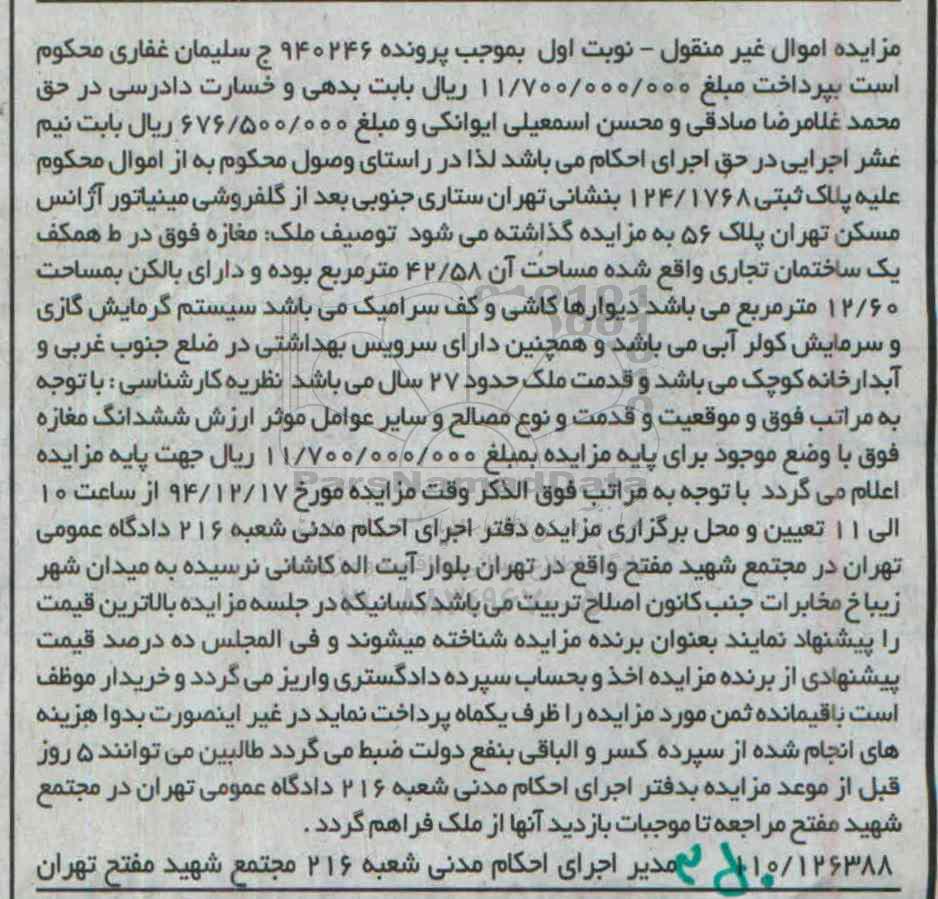 مزایده اموال غیر منقول - نوبت اول بموجب پرونده ۹۴۰۲۴۶ ج سلیمان غفاری محکوم
است بپرداخت مبلغ ۱۱/۷۰۰/۰۰۰/۰۰۰ ریال بابت بدهی و خسارت دادرسی در حق
محمد غلامرضا صادقی و محسن اسمعیلی ایوانکی و مبلغ ۶۷۶/۵۰۰/۰۰۰ ریال بابت نیم
عشر اجرایی در حق اجرای احکام می باشد لذا در راستای وصول محکوم به از اموال محکوم
علیه پلاک ثبتی ۱۲۴/۱۷۶۸ بنشانی تهران ستاری جنوبی بعد از گلفروشی مینیاتور آژانس
مسکن تهران پلاک ۵۶ به مزایده گذاشته می شود توصیف ملک: مغازه فوق در ط همکف
یک ساختمان تجاری واقع شده مساحت آن ۴۲/۵۸ مترمربع بوده و دارای بالکن بمساحت
۱۲/۶۰ مترمربع می باشد دیوارها کاشی و کف سرامیک می باشد سیستم گرمایش گازی
و سرمایش کولر آبی می باشد و همچنین دارای سرویس بهداشتی در ضلع جنوب غربی و
آبدارخانه کوچک می باشد و قدمت ملک حدود ۲۷ سال می باشد نظریه کارشناسی : با توجه
به مراتب فوق و موقعیت و قدمت و نوع مصالح و سایر عوامل موثر ارزش ششدانگ مغازه
فوق با وضع موجود برای پایه مزایده بمبلغ ۱۱/۷۰۰/۰۰۰/۰۰۰ ریال جهت پایه مزایده
اعلام می گردد با توجه به مراتب فوق الذکر وقت مزایده مورخ ۹۴/۱۲/۱۷ از ساعت ۱۰
الی ۱۱ تعیین و محل برگزاری مزایده دفتر اجرای احکام مدنی شعبه ۲۱۶ دادگاه عمومی
تهران در مجتمع شهید مفتح واقع در تهران بلوار آیت اله کاشانی نرسیده به میدان شهر
زیبا خ مخابرات جنب کانون اصلاح تربیت می باشد کسانیکه در جلسه مزایده بالاترین قیمت
را پیشنهاد نمایند بعنوان برنده مزایده شناخته میشوند و فی المجلس ده درصد قیمت
پیشنهادی از برنده مزایده اخذ و بحساب سپرده دادگستری واریز می گردد و خریدار موظف
است باقیمانده ثمن مورد مزایده را ظرف یکماه پرداخت نماید در غیر اینصورت بدوا هزینه
های انجام شده از سپرده کسر و الباقی بنفع دولت ضبط می گردد طالبین می توانند ۵ روز
قبل از موعد مزایده بدفتر اجرای احکام مدنی شعبه ۲۱۶ دادگاه عمومی تهران در مجتمع
شهید مفتح مراجعه تا موجبات بازدید آنها از ملک فراهم گردد .
۱۱۰/۱۲۶۳۸۸ مدیر اجرای احکام مدنی شعبه ۲۱۶ مجتمع شهید مفتح تهران
ParsNamadData